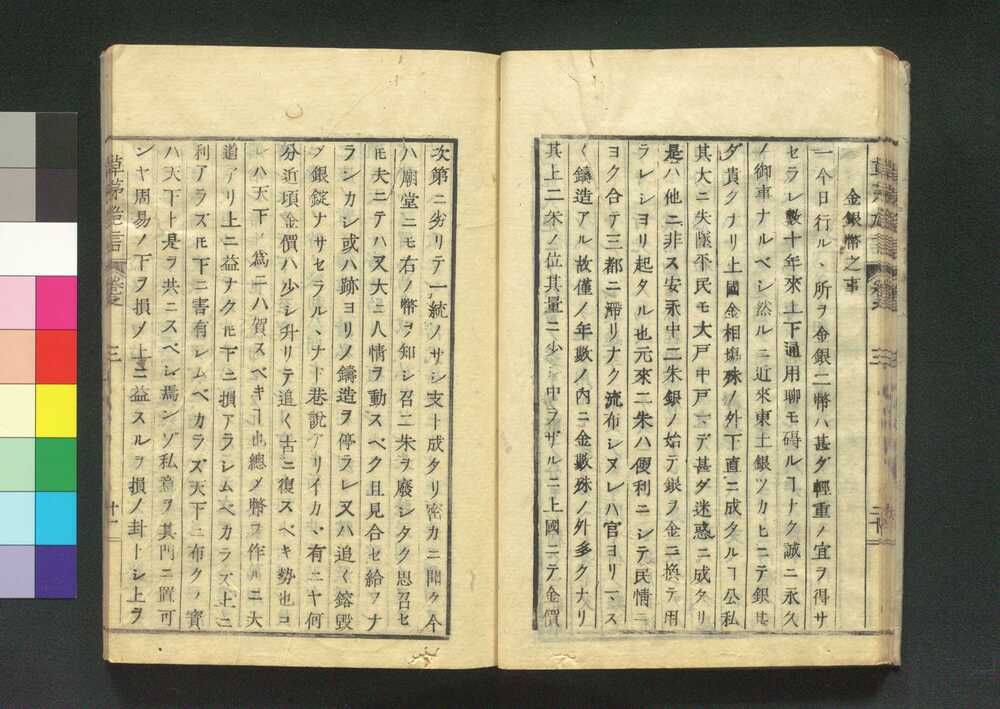 金銀幣之事
一今日行ルヽ所ヲ金銀二幣ハ甚ダ輕重ノ宜ヲ得サ
セラレ數十年來上下通用聊モ碍ルヿナク誠ニ永久
ノ御事ナルベシ然ルニ近來東土銀ツカヒニテ銀甚
ダ貴クナリ上國金相塲殊ノ外下直ニ成タルヿ公私
其大ニ失墜平民モ大戸中戸マデ甚ダ迷惑ニ成タリ
是ハ他ニ非ス安永中二朱銀ノ始テ銀ヲ金ニ換テ用
ラレシヨリ起タル也元來二朱ハ便利ニシテ民情ニ
ヨク合テ三都ニ滯リナク流布シヌレハ官ヨリマス
く鑄造アル故僅ノ年數ノ內ニ金數殊ノ外多クナリ
其上二朱ノ位其量ニ少シ中ヲザルニ上國ニテ金價
次第ニ劣リテ一統ノサシ支ト成タリ密カニ聞ク今
ハ廟堂ニモ右ノ幣ヲ知シ召二朱ヲ廢シタク思召セ
𪜈夫ニテハ又大ニ人情ヲ動スベク且見合セ給ヲナ
ランカシ或ハ跡ヨリノ鑄造ヲ停ラレ又ハ追く鎔毀
ノ銀錠ナサセラルヽナド巷說アリイカヾ有ニヤ何
分近項金價ハ少シ升リテ追く古ニ復スベキ勢也コ
レハ天下ノ爲ニハ賀スベキヿ也總メ幣ヲ作ルニ大
道アリ上ニ益ナク𪜈下ニ損アラシムベカラズ上ニ
利アラズ𪜈下ニ害有シムベカラズ天下ニ布クノ寳
ハ天下ト是ヲ共ニスベシ焉ンゾ私意ヲ其門ニ置可
シヤ周易ノ下ヲ損メ上ニ益スルヲ損ノ卦トシ上ヲ
草茅危言
三
十一